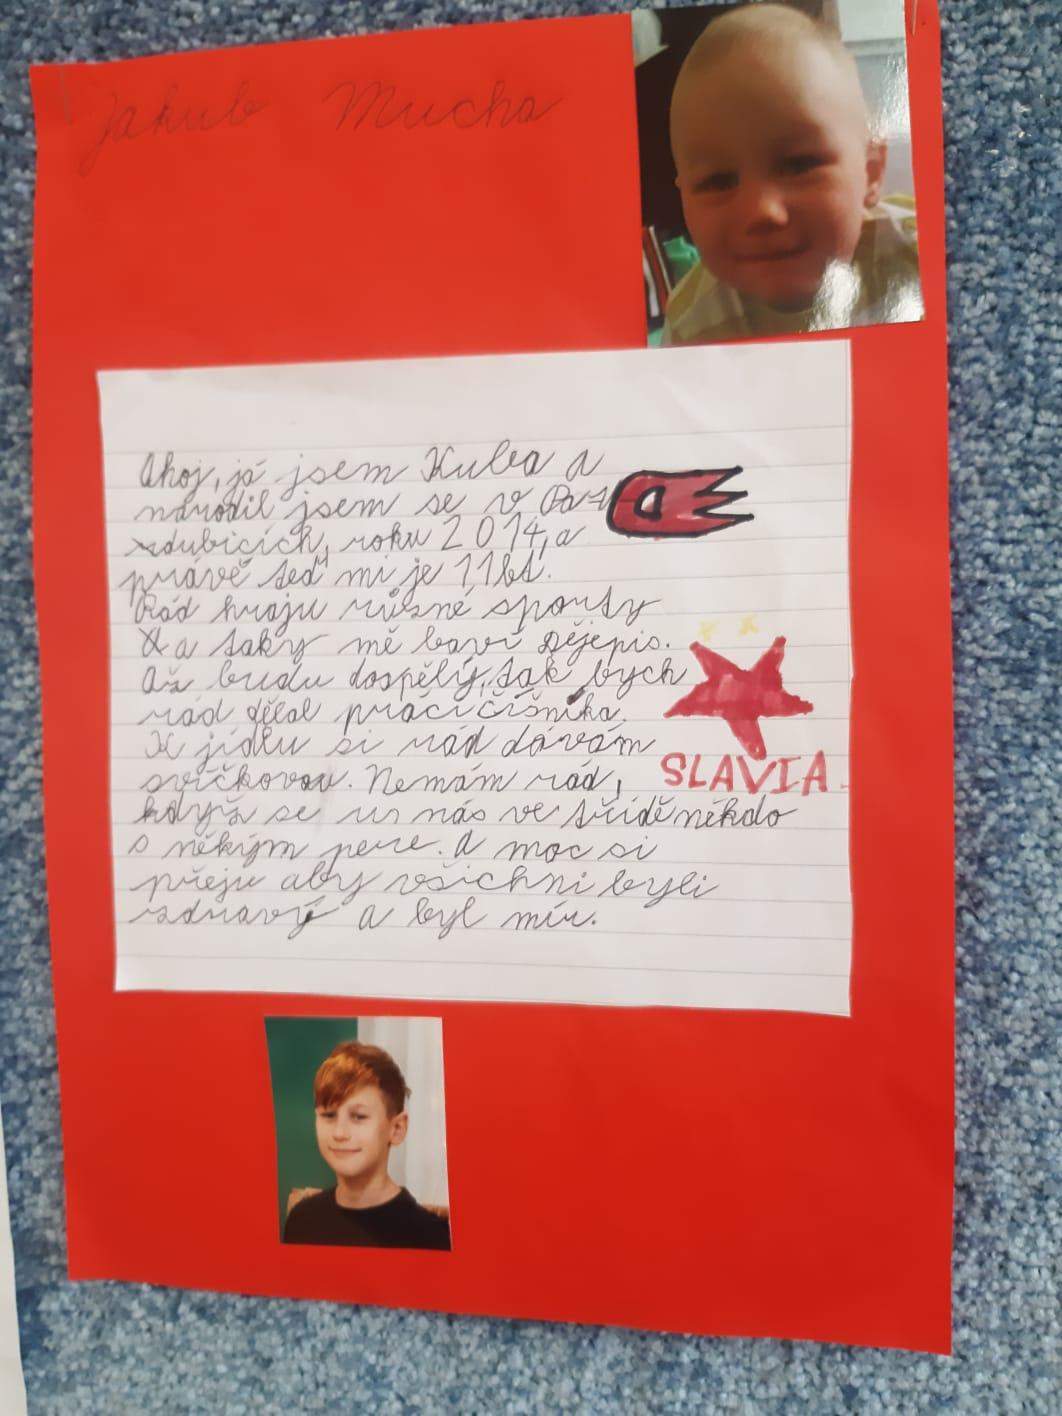 Jakub Mucha
Ahoj, já jsem Kuba a
narodil jsem se v Pa-
rdubicích, roku 2014, a
právě teď mi je 11let.
Rád hraju různé sporty
a taky mě baví Dějepis.
Až budu dospělý, tak bych
rád dělal práci číšníka.
K jídlu si rád dávám
svíčkovou. Nemám rád,
SLAVIA
když se u nás ve třídě někdo
s někým pere. A moc si
přeju aby všichni byli
zdravý a byl mír.